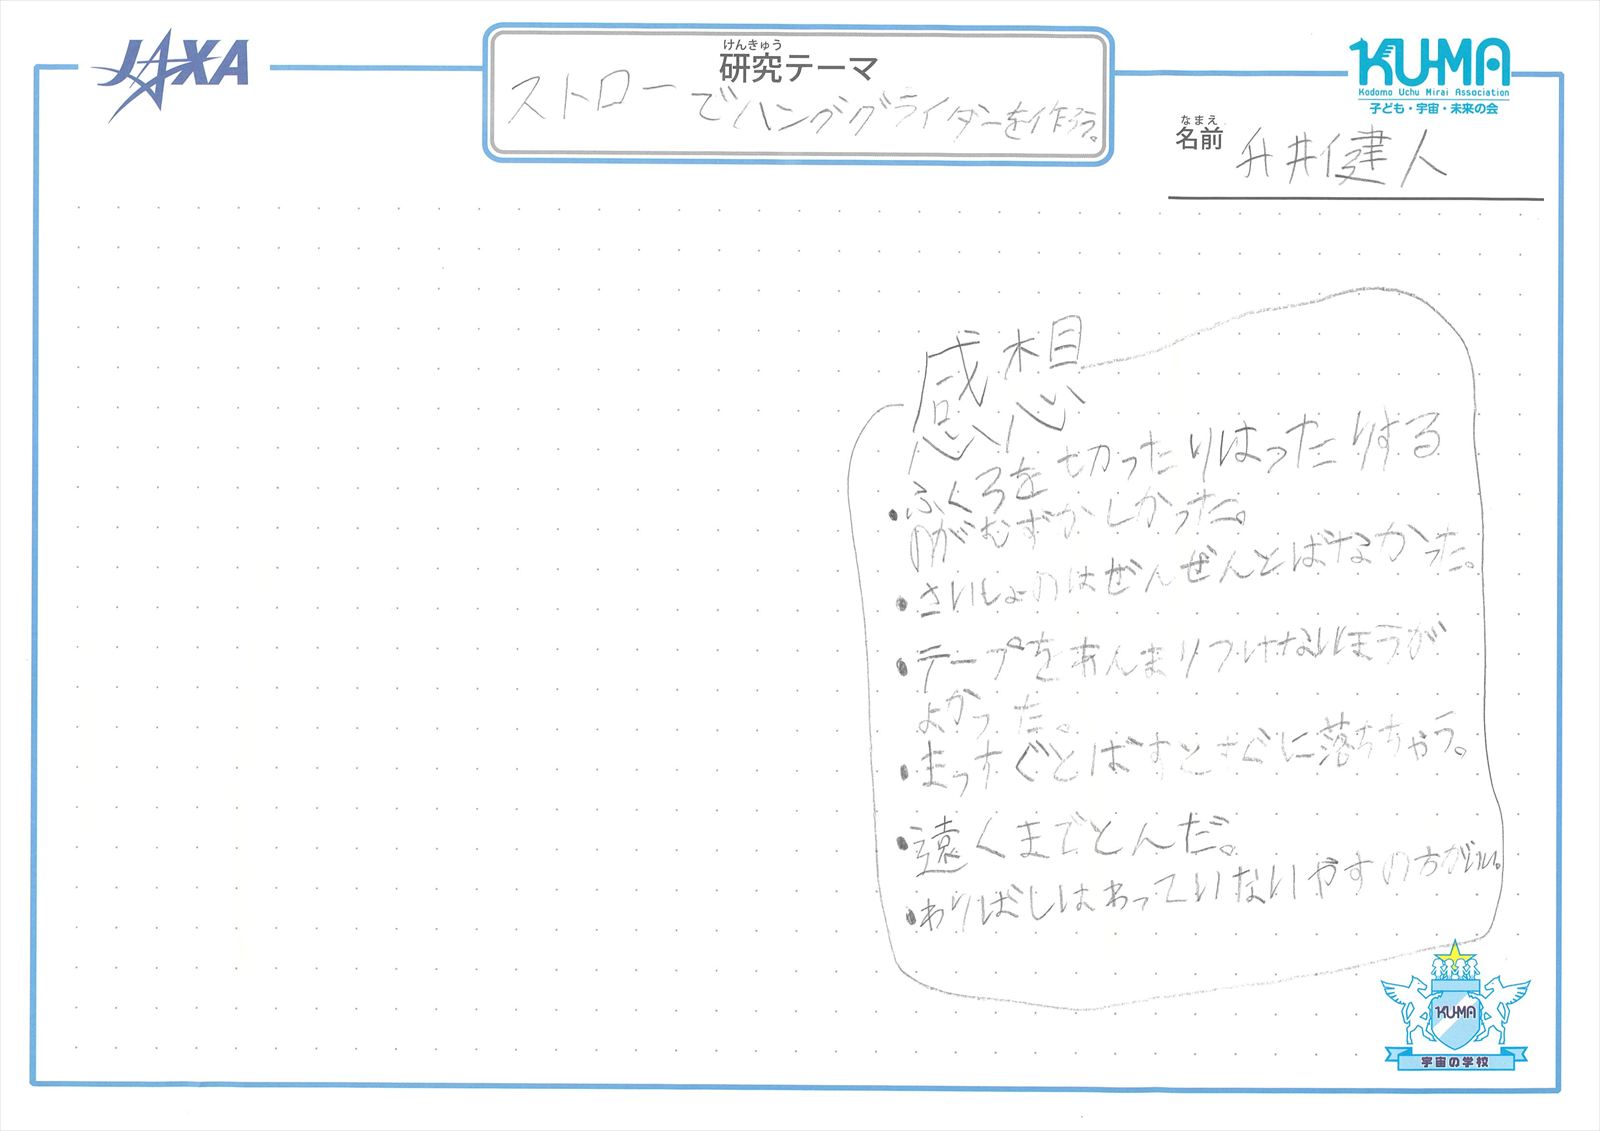 JAXA
けんきゅう
研究テーマ
ストローでハンググライダーを作ろう。
KU-MA
Kodomo Uchu Mirai Association
子ども・宇宙・未来の会
なまえ
名前 舟井健人
感想
・ふくろを切ったりはったりする
のがむずかしかった。
・さいしょのはぜんぜんとばなかった。
・テープをあんまりつけないほうが
よかった。
・まっすぐとばすとすぐに落ちちゃう。
・遠くまでとんだ。
・わりばしはわっていないやすの方がいい。
KU-MA
宇宙の学校